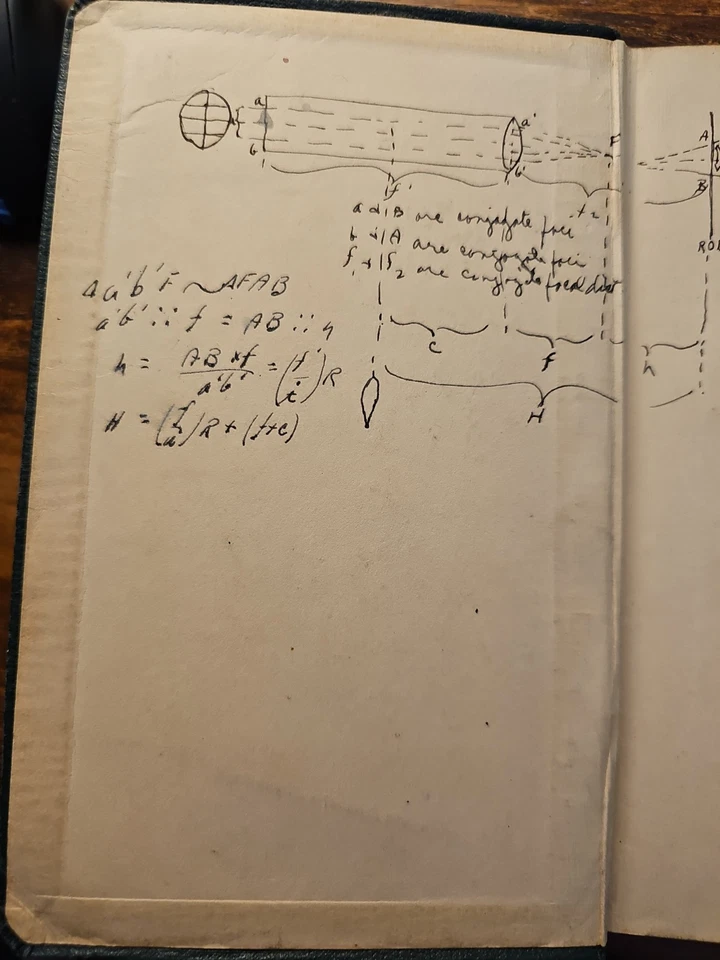 a
a'
i
F
A
b
b'
B
f'
f2
a & B are conjugate foci
ROD
b & A are conjugate foci
f1 & f2 are conjugate focal dist
Δ a'b'F ~ ΔFAB
a'b' :: f = AB :: h
c
f
h
h = AB × f / a'b' = (f/i) R
H
H = (f/a) R + (f+c)